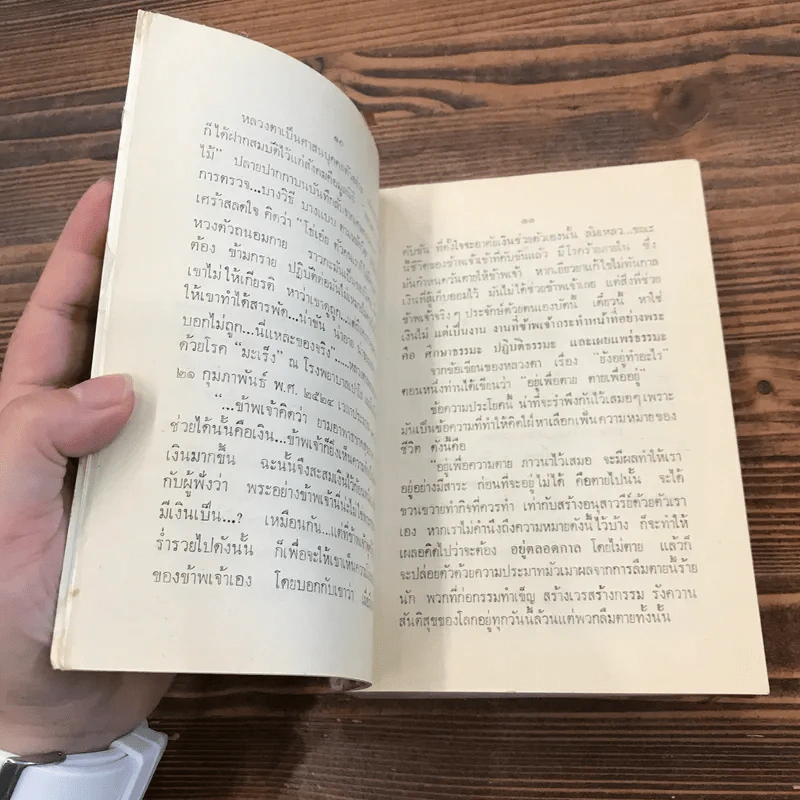 ๑๐
หลวงตาเป็นศาสนบุคคล
ก็ได้ฝากสมบัติไว้แก่สังคมคือ
ไม้" ปลายปากกาบนบันทึก
การตรวจ...บางวิธี บางแบบ
เศร้าสลดใจ คิดว่า "โธ่เอ๋ย ตัวคน
หวงตัวถนอมกาย ราวกะมันเป็นของ
ต้อง ข้ามกราย ปฏิบัติต่อมันไม่
เขาไม่ให้เกียรติ หาว่าเขาดูถูก
ให้เขาทำได้สารพัด...น่าขัน น่าอาย
บอกไม่ถูก...นี่แหละของจริง"
ด้วยโรค "มะเร็ง" ณ โรงพยาบาล
๒๑ กุมภาพันธ์ พ.ศ. ๒๕๒๔ เวลา
"...ข้าพเจ้าคิดว่า ยามอาพาธ
ช่วยได้นั้นคือเงิน...ข้าพเจ้าก็ยิ่งเห็นความ
เงินมากขึ้น ฉะนั้นจึงสะสมเงินไว้
กับผู้ฟังว่า พระอย่างข้าพเจ้านี่น่ะไม่ใช่
มีเงินเป็น...? เหมือนกัน...แต่ที่ข้าพเจ้า
ร่ำรวยไปดังนั้น ก็เพื่อจะให้เขาเห็นความ
ของข้าพเจ้าเอง โดยบอกกับเขาว่า
๑๑
คับขัน ที่ตั้งใจจะอาศัยเงินช่วยตัวเองนั้น ล้มเหลว...ขณะ
นี้ชีวิตของข้าพเจ้าเข้าที่คับขันแล้ว มีโรคร้ายภายใน ซึ่ง
มันกำหนดวันตายให้ข้าพเจ้า หากเยียวยาแก้ไขไม่ทันกาล
เงินที่สู้เก็บออมไว้ มันไม่ได้ช่วยข้าพเจ้าเลย แต่สิ่งที่ช่วย
ข้าพเจ้าจริงๆ ประจักษ์ด้วยตนเองบัดนี้ เดี๋ยวนี้ หาใช่
เงินไม่ แต่เป็นงาน งานที่ข้าพเจ้ากระทำหน้าที่อย่างพระ
คือ ศึกษาธรรมะ ปฏิบัติธรรมะ และเผยแพร่ธรรมะ
จากข้อเขียนของหลวงตา เรื่อง "ยังอยู่ทำอะไร"
ตอนหนึ่งท่านได้เขียนว่า "อยู่เพื่อตาย ตายเพื่ออยู่"
ข้อความประโยคนี้ น่าที่จะรำพึงกันไว้เสมอๆเพราะ
มันเป็นข้อความที่ทำให้คิดใฝ่หาเลือกเฟ้นความหมายของ
ชีวิต ดังนี้คือ
"อยู่เพื่อความตาย ภาวนาไว้เสมอ จะมีผลทำให้เรา
อยู่อย่างมีสาระ ก่อนที่จะอยู่ไม่ได้ คือตายไปนั้น จะได้
ขวนขวายทำกิจที่ควรทำ เท่ากับสร้างอนุสาวรีย์ด้วยตัวเรา
เอง หากเราไม่คำนึงถึงความหมายดังนี้ไว้บ้าง ก็จะทำให้
เผลอคิดไปว่าจะต้อง อยู่ตลอดกาล โดยไม่ตาย แล้วก็
จะปล่อยตัวด้วยความประมาทมัวเมาผลจากการลืมตายนี้ร้าย
นัก พวกที่ก่อกรรมทำเข็ญ สร้างเวรสร้างกรรม รังควาน
สันติสุขของโลกอยู่ทุกวันนี้ล้วนแต่พวกลืมตายทั้งนั้น